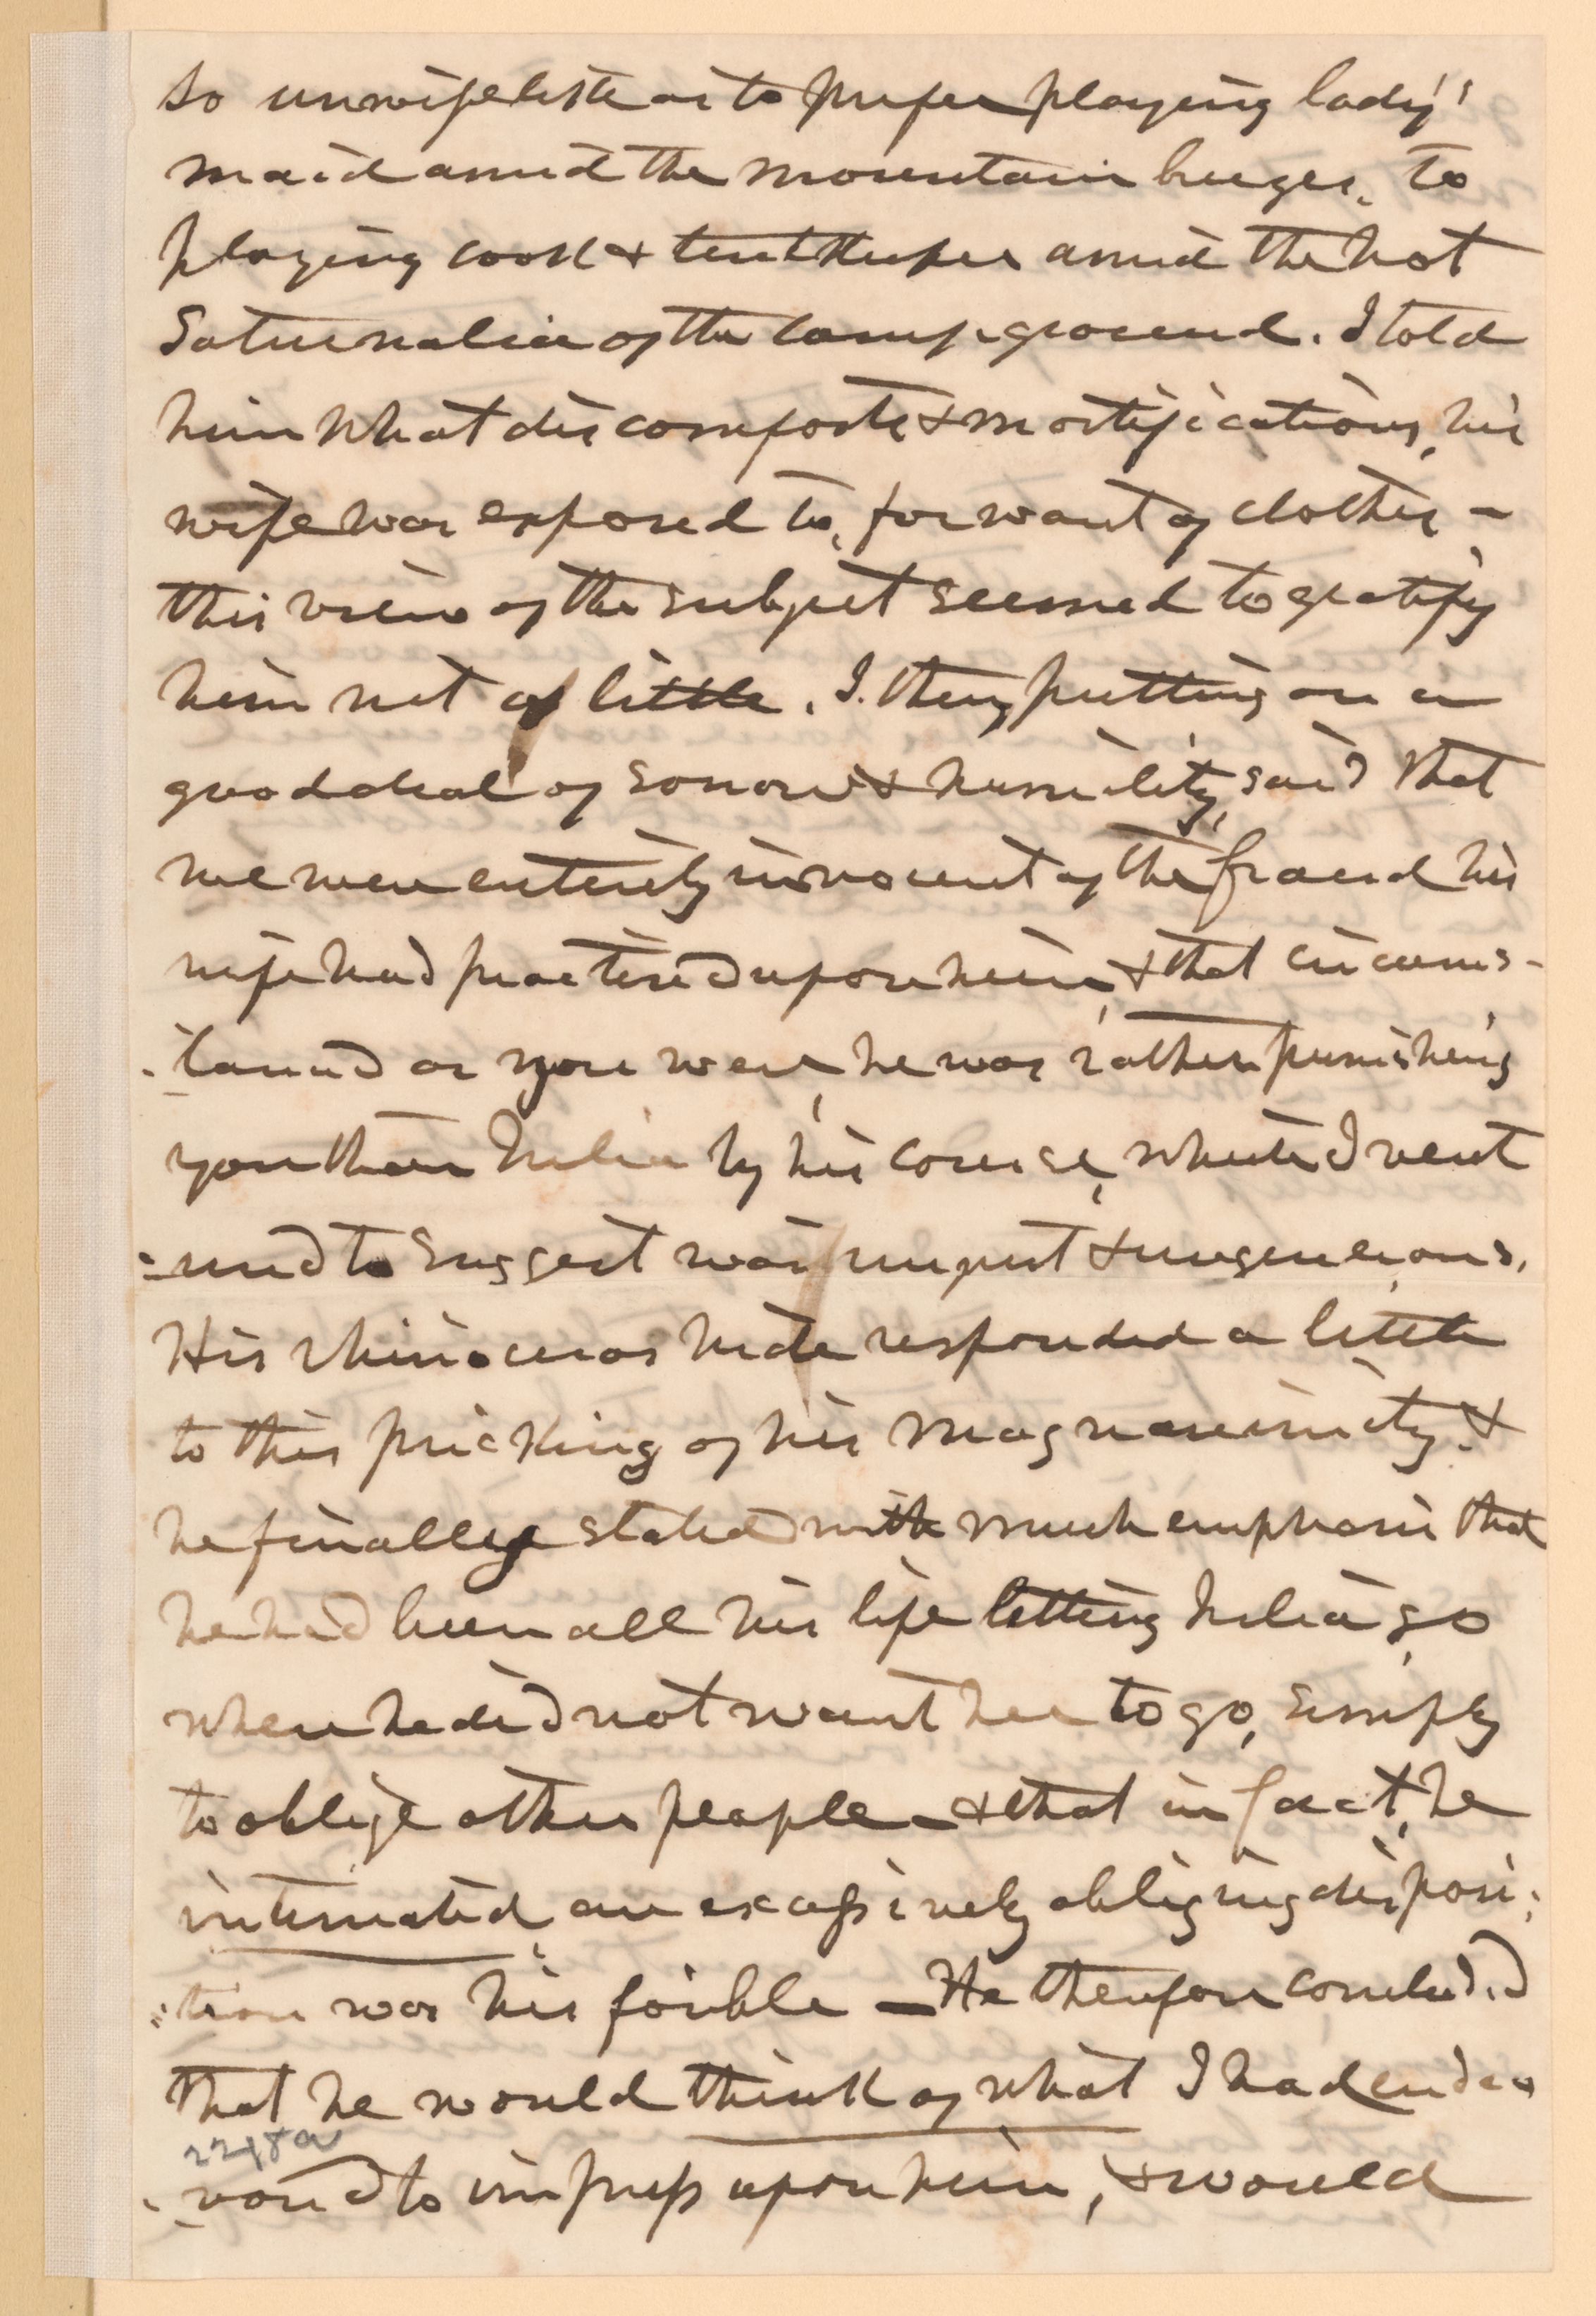 so unwifelike as to prefer playing lady's
maid amid the mountain breezes, to
playing cook & tent keeper amid the hot
Saturnalia of the camp ground. I told
him what discomforts & mortifications, his
wife was exposed to, for want of clothes –
this view of the subject seemed to gratify
him not a little. I. then, putting on a
good deal of sorrow & humility, said that
we were entirely innocent of the fraud his
wife had practised upon him, & that circums-
-tanced as you were, he was rather punishing
you than Julia by his course, which I vent
=ured to suggest was unjust & ungenerous.
His rhinoceros hide responded a little
to this pricking of his magnanimity. &
he finally stated with much emphasis that
he had been all his life letting Julia go
when he did not want her to go, simply
to oblige other people – & that in fact, he
intimated, an excessively obliging disposi:
:tion was his foible – He therefore concluded
that he would think of what I had endea
2218a
-vored to impress upon him, & would